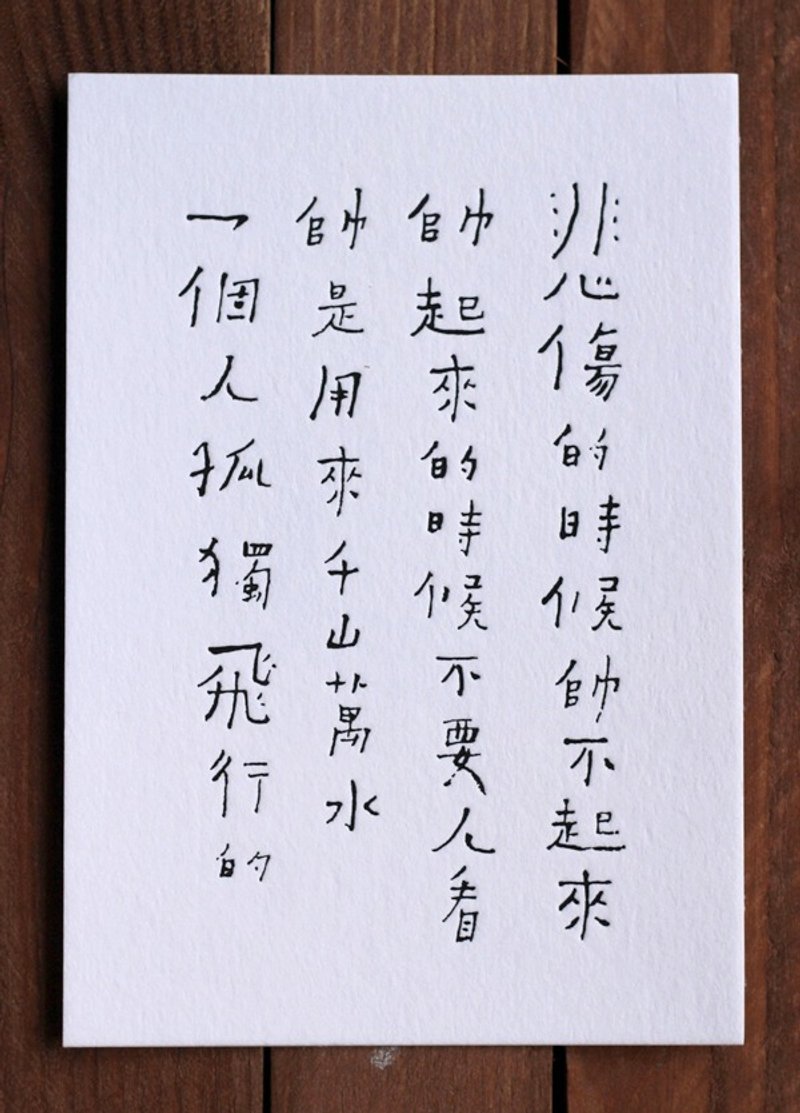 悲傷的時候帥不起來
帥起來的時候不要人看
帥是用來千山萬水
一個人孤獨飛行的